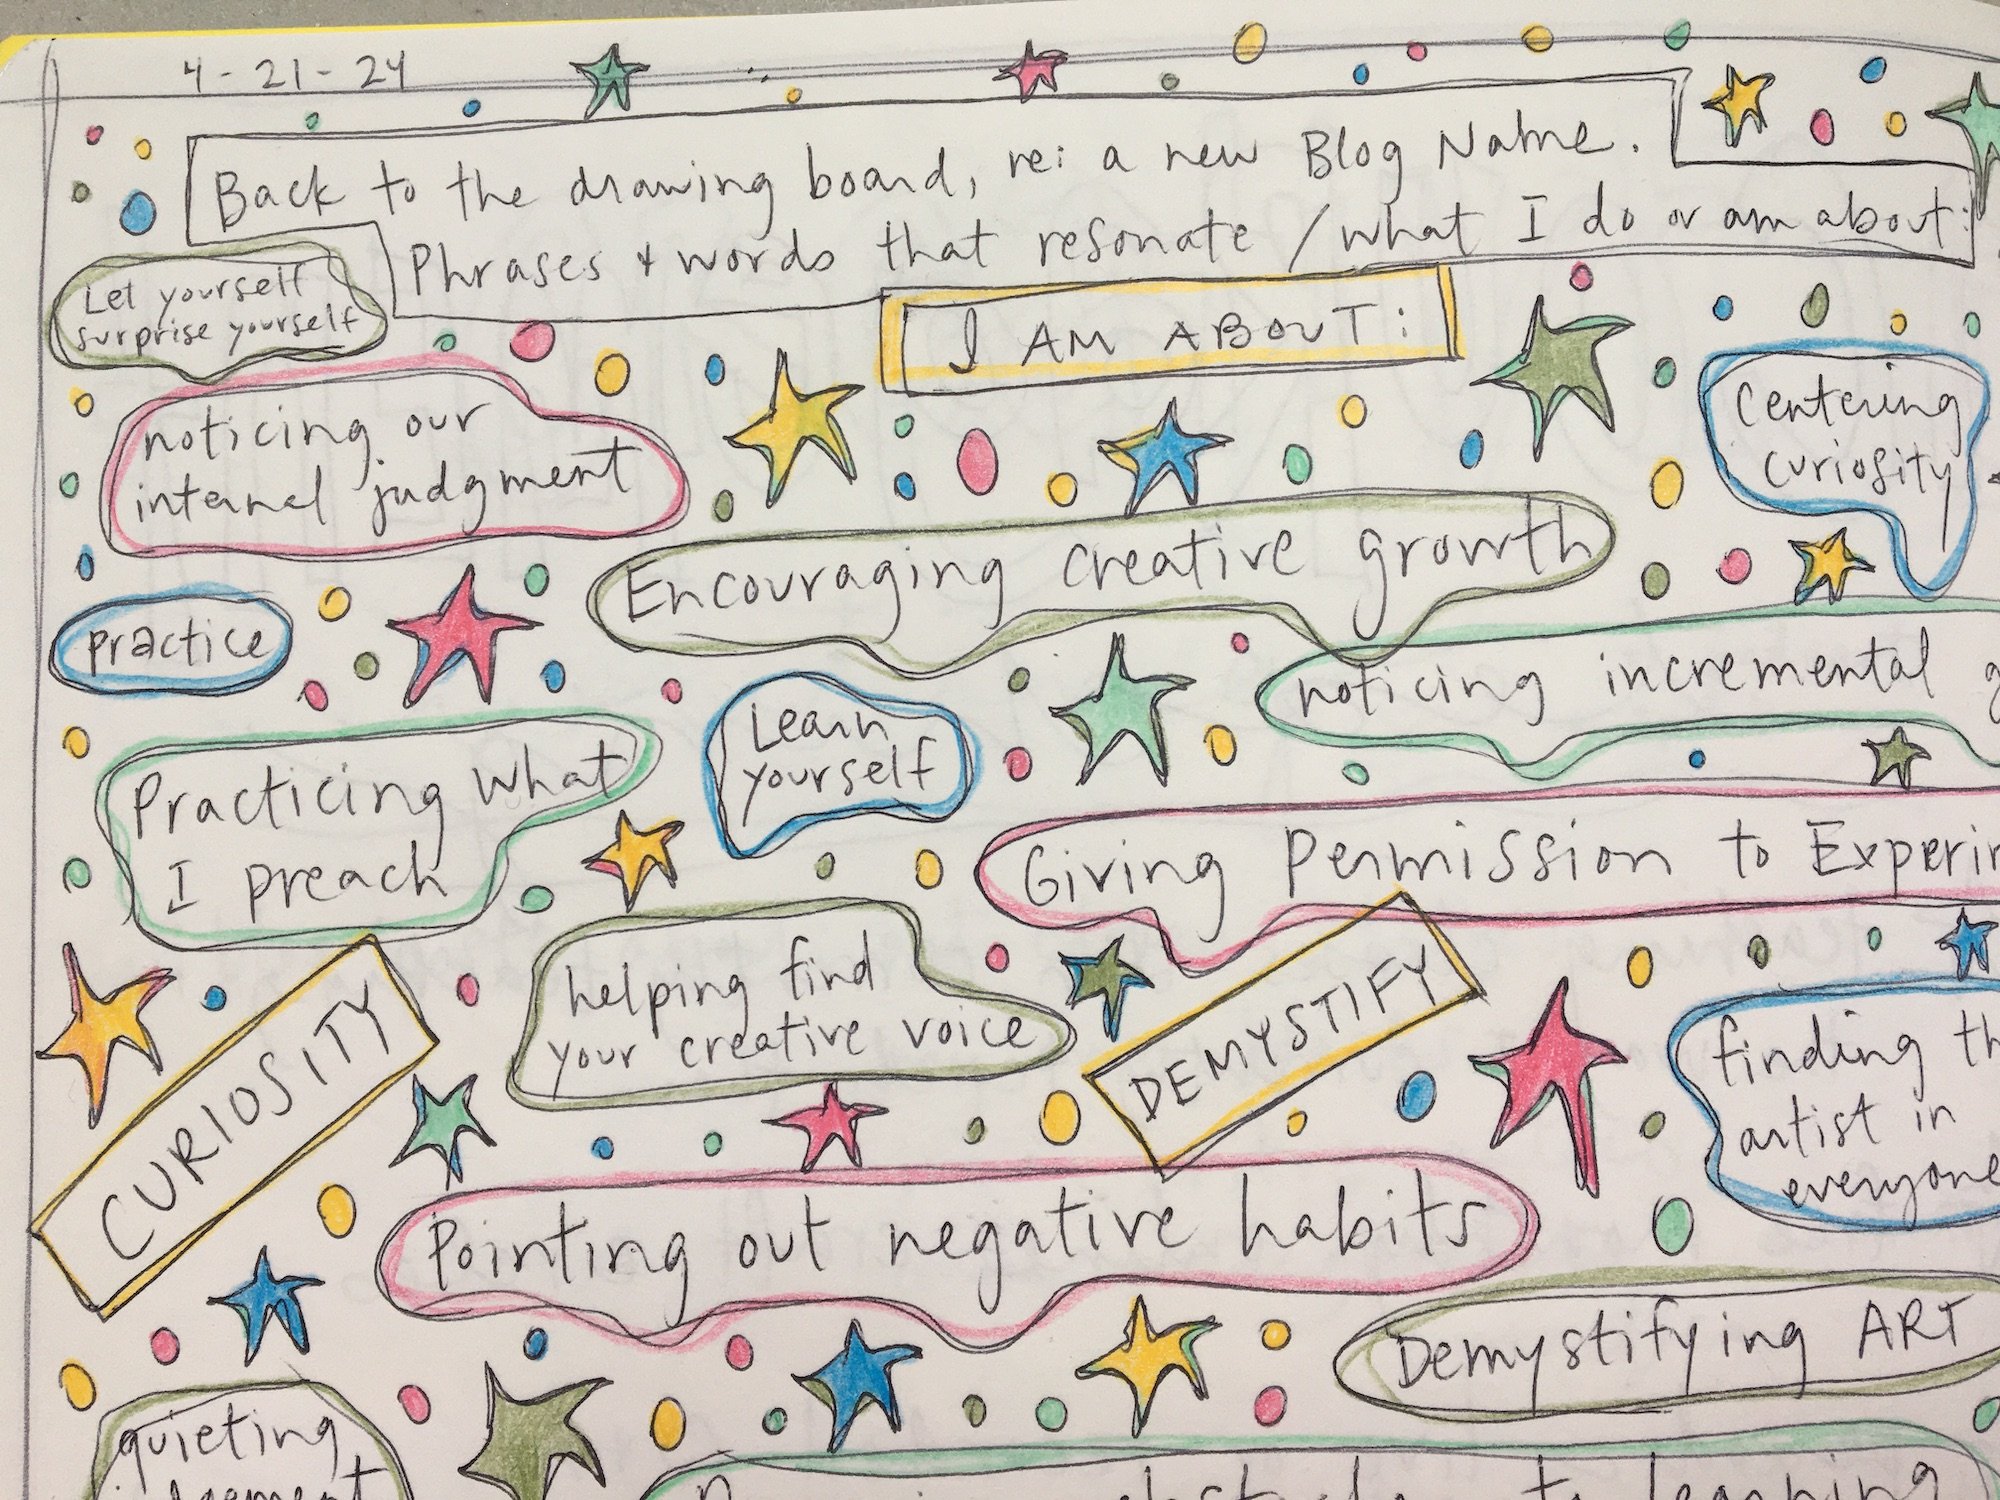 4-21-24
Back to the drawing board, re: a new Blog Name.
Phrases + words that resonate / what I do or am about:
I AM ABOUT:
Let yourself
surprise yourself
noticing our
internal judgment
Centering
curiosity
Encouraging creative growth
practice
noticing incremental
Learn
yourself
Practicing what
I preach
Giving Permission to Experim
helping find
your creative voice
CURIOSITY
DEMYSTIFY
finding th
artist in
everyone
Pointing out negative habits
Demystifying ART
quieting
to learning